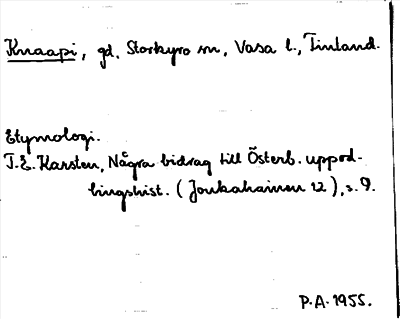 Knaapi, gd, Storkyro sn, Vasa l., Finland.
Etymologi.
T.E. Karsten, Några bidrag till Österb. uppod-
lingshist. (Joukahainen 12), s. 9.
P.A. 1955.